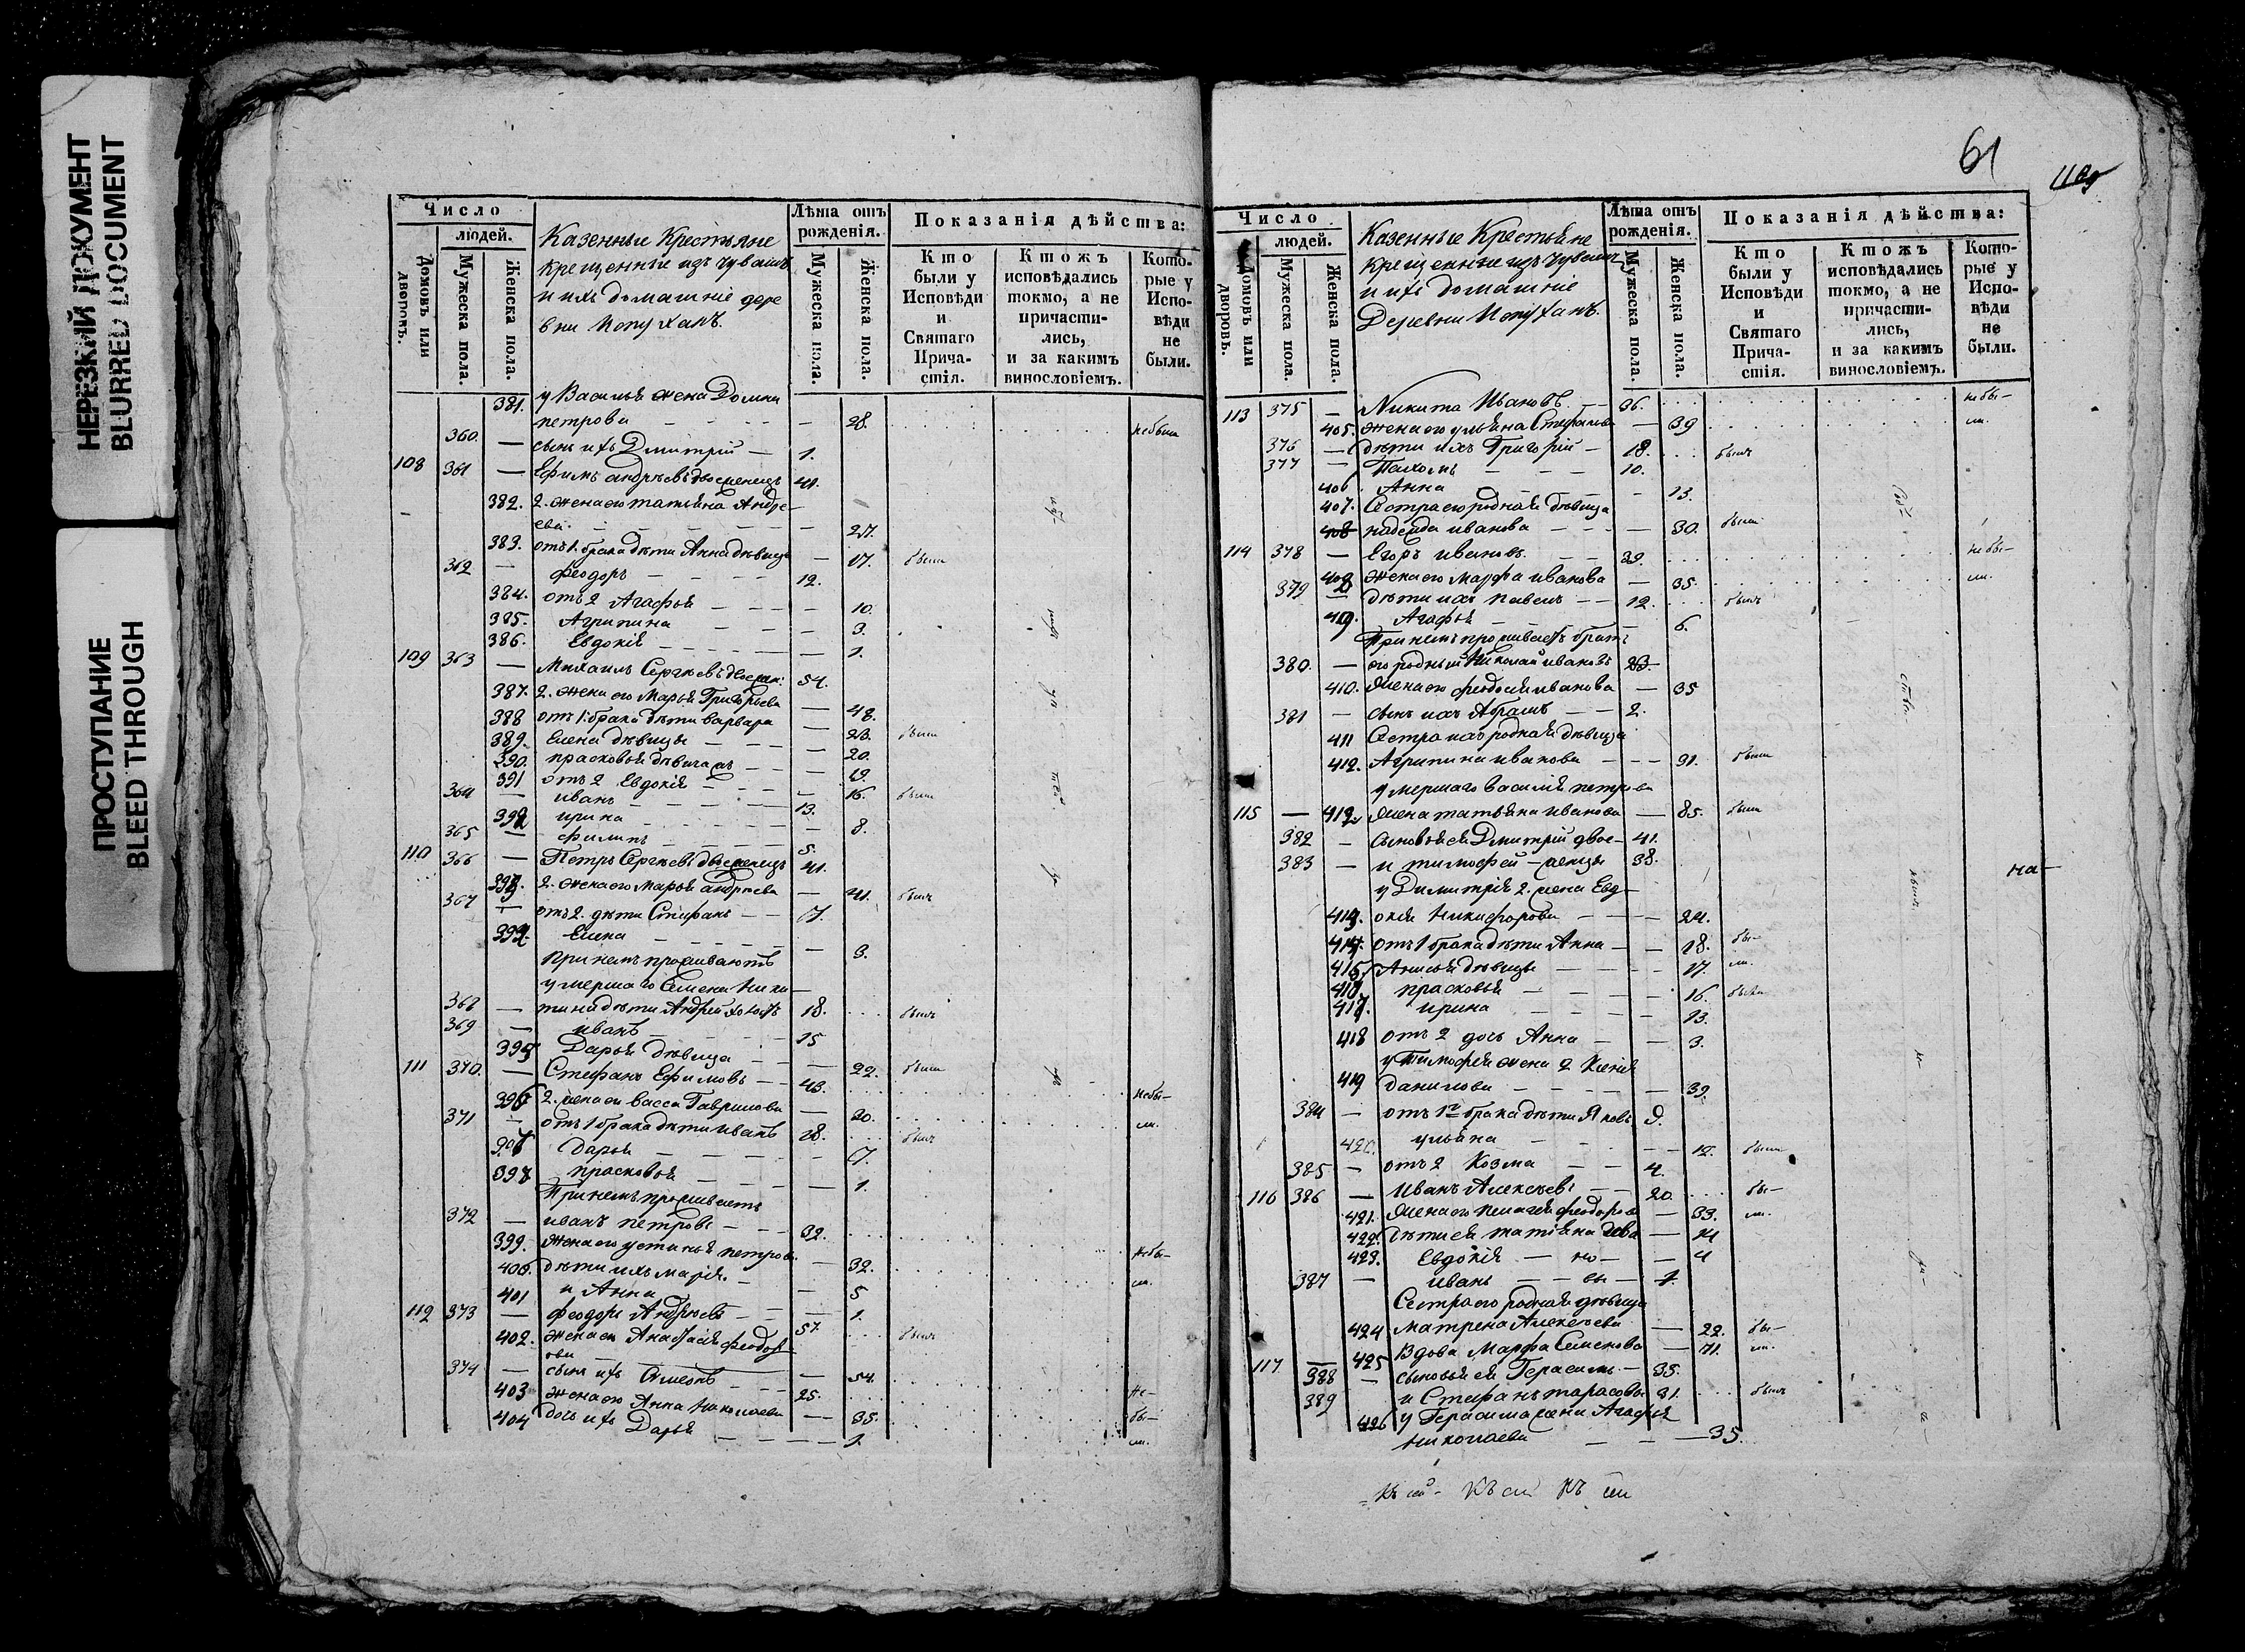 НЕРЕЗКИЙ ДОКУМЕНТ
BLURRED DOCUMENT
ПРОСТУПАНИЕ
BLEED THROUGH
Число
людей.
Домовъ или дворовъ.
Мужеска пола.
Женска пола.
Казенные Крестьяне
крещенные изъ чувашъ
и ихъ домашніе дере
вни
Лѣта отъ рожденія.
Мужеска пола.
Женска пола.
Показанія дѣйства:
Кто были у Исповѣди и Святаго Прича- стія.
Ктожъ исповѣдались токмо, а не причасти- лись, и за какимъ винословіемъ.
Кото- рые у Испо- вѣди не были.
381. у Василья жена Домна
петрова — 28. небыли
360. — сынъ ихъ Дмитрій — 1.
108 361 — Ефимъ андреевъ двоеженецъ 41.
382. 2. жена его татьяна Андре-
ева. — 27.
383. отъ 1. брака дѣти Анна дѣвица — 17. были
362 — феодоръ — 12.
384. отъ 2 Агафья — 10.
385. Агрипина — 3.
386. Евдокія — 1.
109 363 — Михаилъ Сергѣевъ двоежен: 54.
387. 2. жена его Марья Григорьева — 48.
388 отъ 1. брака дѣти варвара — 23. были
389. Елена дѣвицы — 20.
390. прасковья — 19.
391 отъ 2 Евдокія — 16. были
364 — иванъ — 13.
392 ирина — 8.
365 — филипъ — 5.
110 366 — Петръ Сергѣевъ двоеженецъ 41.
393. 2. жена его Марья андреева — 41. были
367 — отъ 2. дѣти Стефанъ — 7.
394. Елена — 3.
При немъ проживаютъ
умершаго Семена Ники-
368 — тина дѣти Андрей холостъ 18. былъ
369 — иванъ — 15
395 Дарья дѣвица — 22. были
111 370. — Стефанъ Ефимовъ — 43. небы-
396 2. жена его васса Гаврилова — 20. ли.
371 — отъ 1 брака дѣти иванъ 28. былъ
397 Дарья — 7.
398 прасковья — 1.
При немъ проживаетъ
372 — иванъ петровъ — 32.
399. жена его устинья петрова — 32. небы-
400. дѣти ихъ марія. — 5 ли.
401 и Анна — 1.
112 373 — феодоръ Андреевъ — 57. были
402. жена его Анастасія феодор-
ова — 54.
374 — сынъ ихъ Симеонъ — 25. не-
403 жена его Анна Николаева — 35. бы-
404 дочь ихъ Дарья — 1. ли.
61
Число
людей.
Домовъ или дворовъ.
Мужеска пола.
Женска пола.
Казенные Крестьяне
крещенные изъ чувашъ
и ихъ домашніе
Деревни
Лѣта отъ рожденія.
Мужеска пола.
Женска пола.
Показанія дѣйства:
Кто были у Исповѣди и Святаго Прича- стія.
Ктожъ исповѣдались токмо, а не причасти- лись, и за какимъ винословіемъ.
Кото- рые у Испо- вѣди не были.
113 375 — Никита Ивановъ — 36. небы-
405. жена его ульяна Стефанова — 39 ли.
376 — дѣти ихъ Григорій — 18. былъ
377 — Пахомъ — 10.
406 Анна — 13.
407. Сестра его родная дѣвица
408 надежда иванова — 30. были
114 378 — Егоръ ивановъ. — 39. небы-
408 жена его Марфа иванова — 35. ли.
379 — дѣти ихъ павелъ — 12. былъ
409. Агафья — 6.
При немъ проживаетъ братъ
380. — его родный Николай ивановъ 23
410. жена его феодосья иванова — 35
381 — сынъ ихъ Абрамъ — 2.
411 Сестра ихъ родная дѣвица
412. Агрипина иванова — 31. были
умершаго василія петрова
115 — 412 жена татьяна иванова — 85. были
382 — сыновья ея Дмитрій двое- 41.
383 — и тимофей -женцы 38.
у Димитрія 2. жена Евд-
413. окія Никифорова — 24.
414. отъ 1 брака дѣти Анна — 18. бы-
415. Анисья дѣвицы — 17. ли.
416 прасковья — 16. были
417. ирина — 13.
418 отъ 2 дочь Анна — 3.
у тимофея жена 2 Ксенія
419 данилова — 39.
384 — отъ 1го брака дѣти Яковъ 9.
420. ульяна — 12. были
385 — отъ 2 Козма — 4.
116 386 — Иванъ Алексѣевъ — 20. бы-
421. жена его пелагея феодорова — 33. ли.
422. дѣти ея татіяна
423. Евдокія — 4
387 — иванъ
Сестра его родная дѣвица
424 матрена Алексѣева — 22. бы-
425 Вдова Марфа Семенова — 71. ли.
117 388 — сыновья ея Герасимъ — 35.
389 и Стефанъ тарасовы 31. былъ
426 у Герасима жена Агафья
николаева — 35.
на-